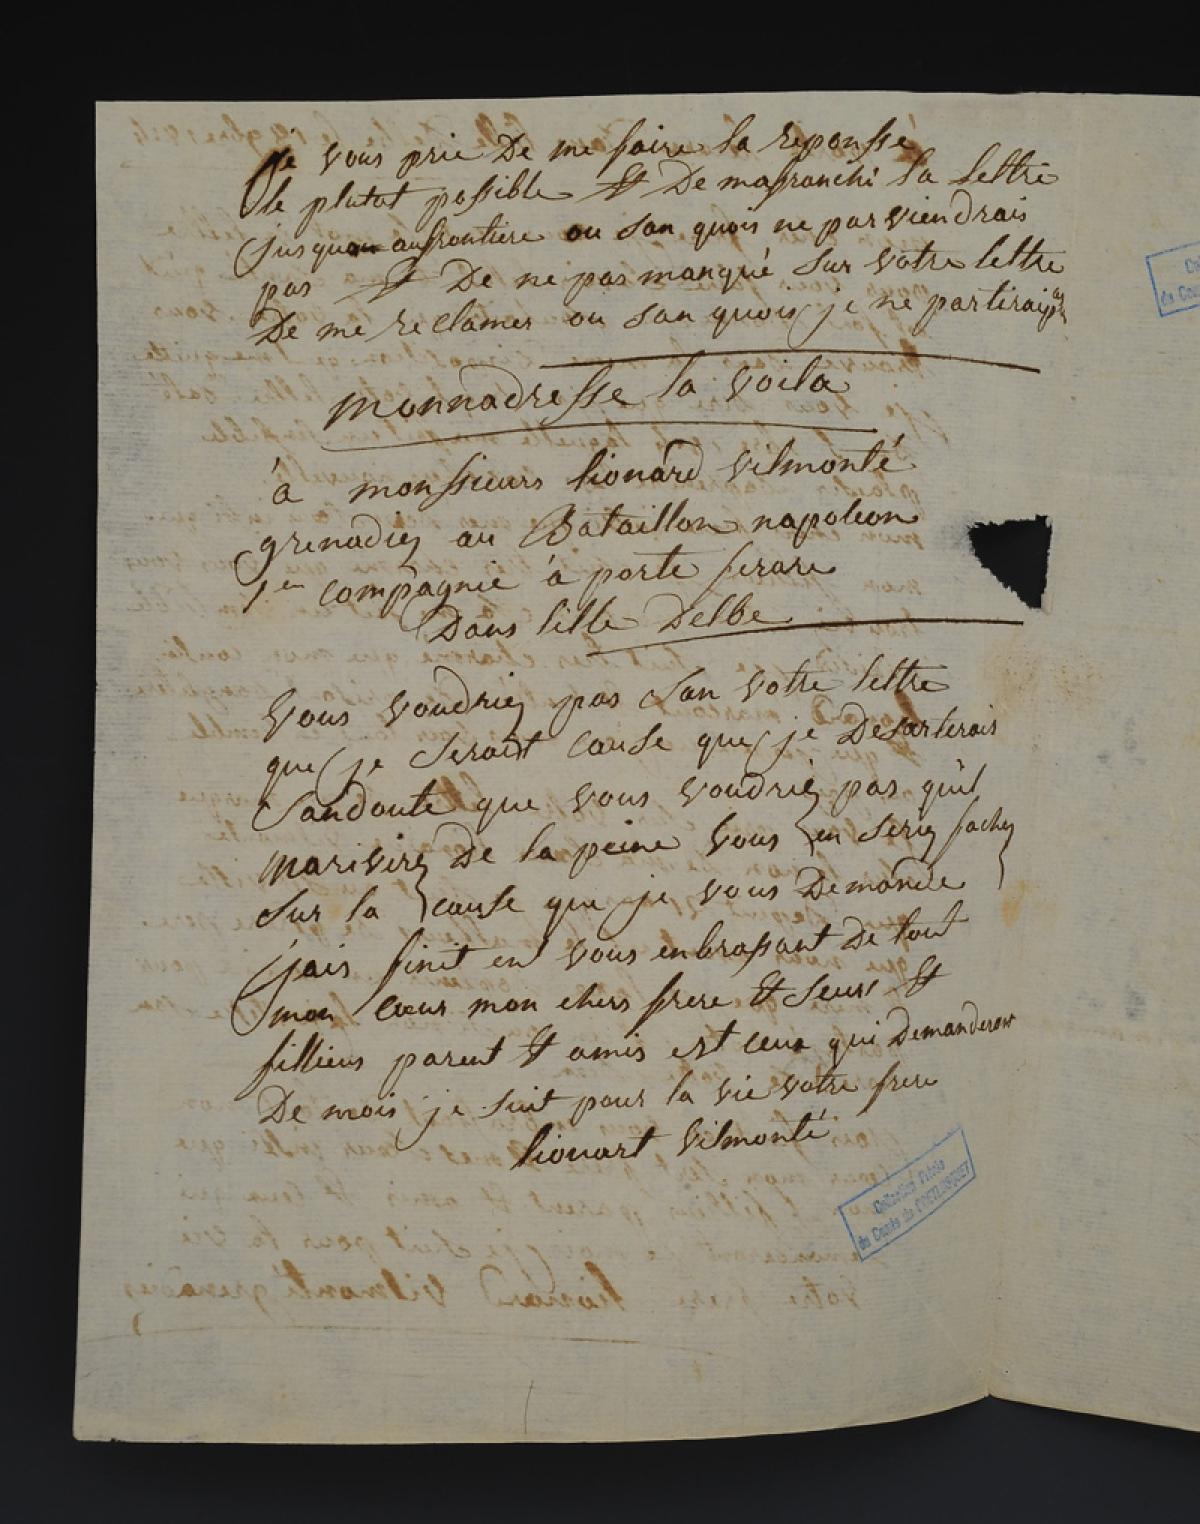 je vous prie De me faire la reponsse
le plutot possible et De mafranchi la lettre
jusquau aufrontiere ou san quois ne parviendrais
pas et De ne pas manqué sur votre lettre
De me reclamer ou san quois je ne partirai pas
monnadresse la voila
à monssieurs lionard vilmonté
grenadiez au Bataillon napoleon
1er compagnie à porte ferare
Dans lille Delbe
vous voudriez pas san votre lettre
que je seroit cause que je Desarterais
sandoute que vous voudriez pas quil
marivirez De la peine vous en seriez fachez
sur la cause que je vous Demande
jais finit en vous enbrassant De tout
mon cœur mon chers frere et seurs et
filliens parent et amis est ceux qui Demanderont
De mois je suit pour la vie votre frere
lionart vilmonté
Collection Privée
du Comte de POETLOSQUET